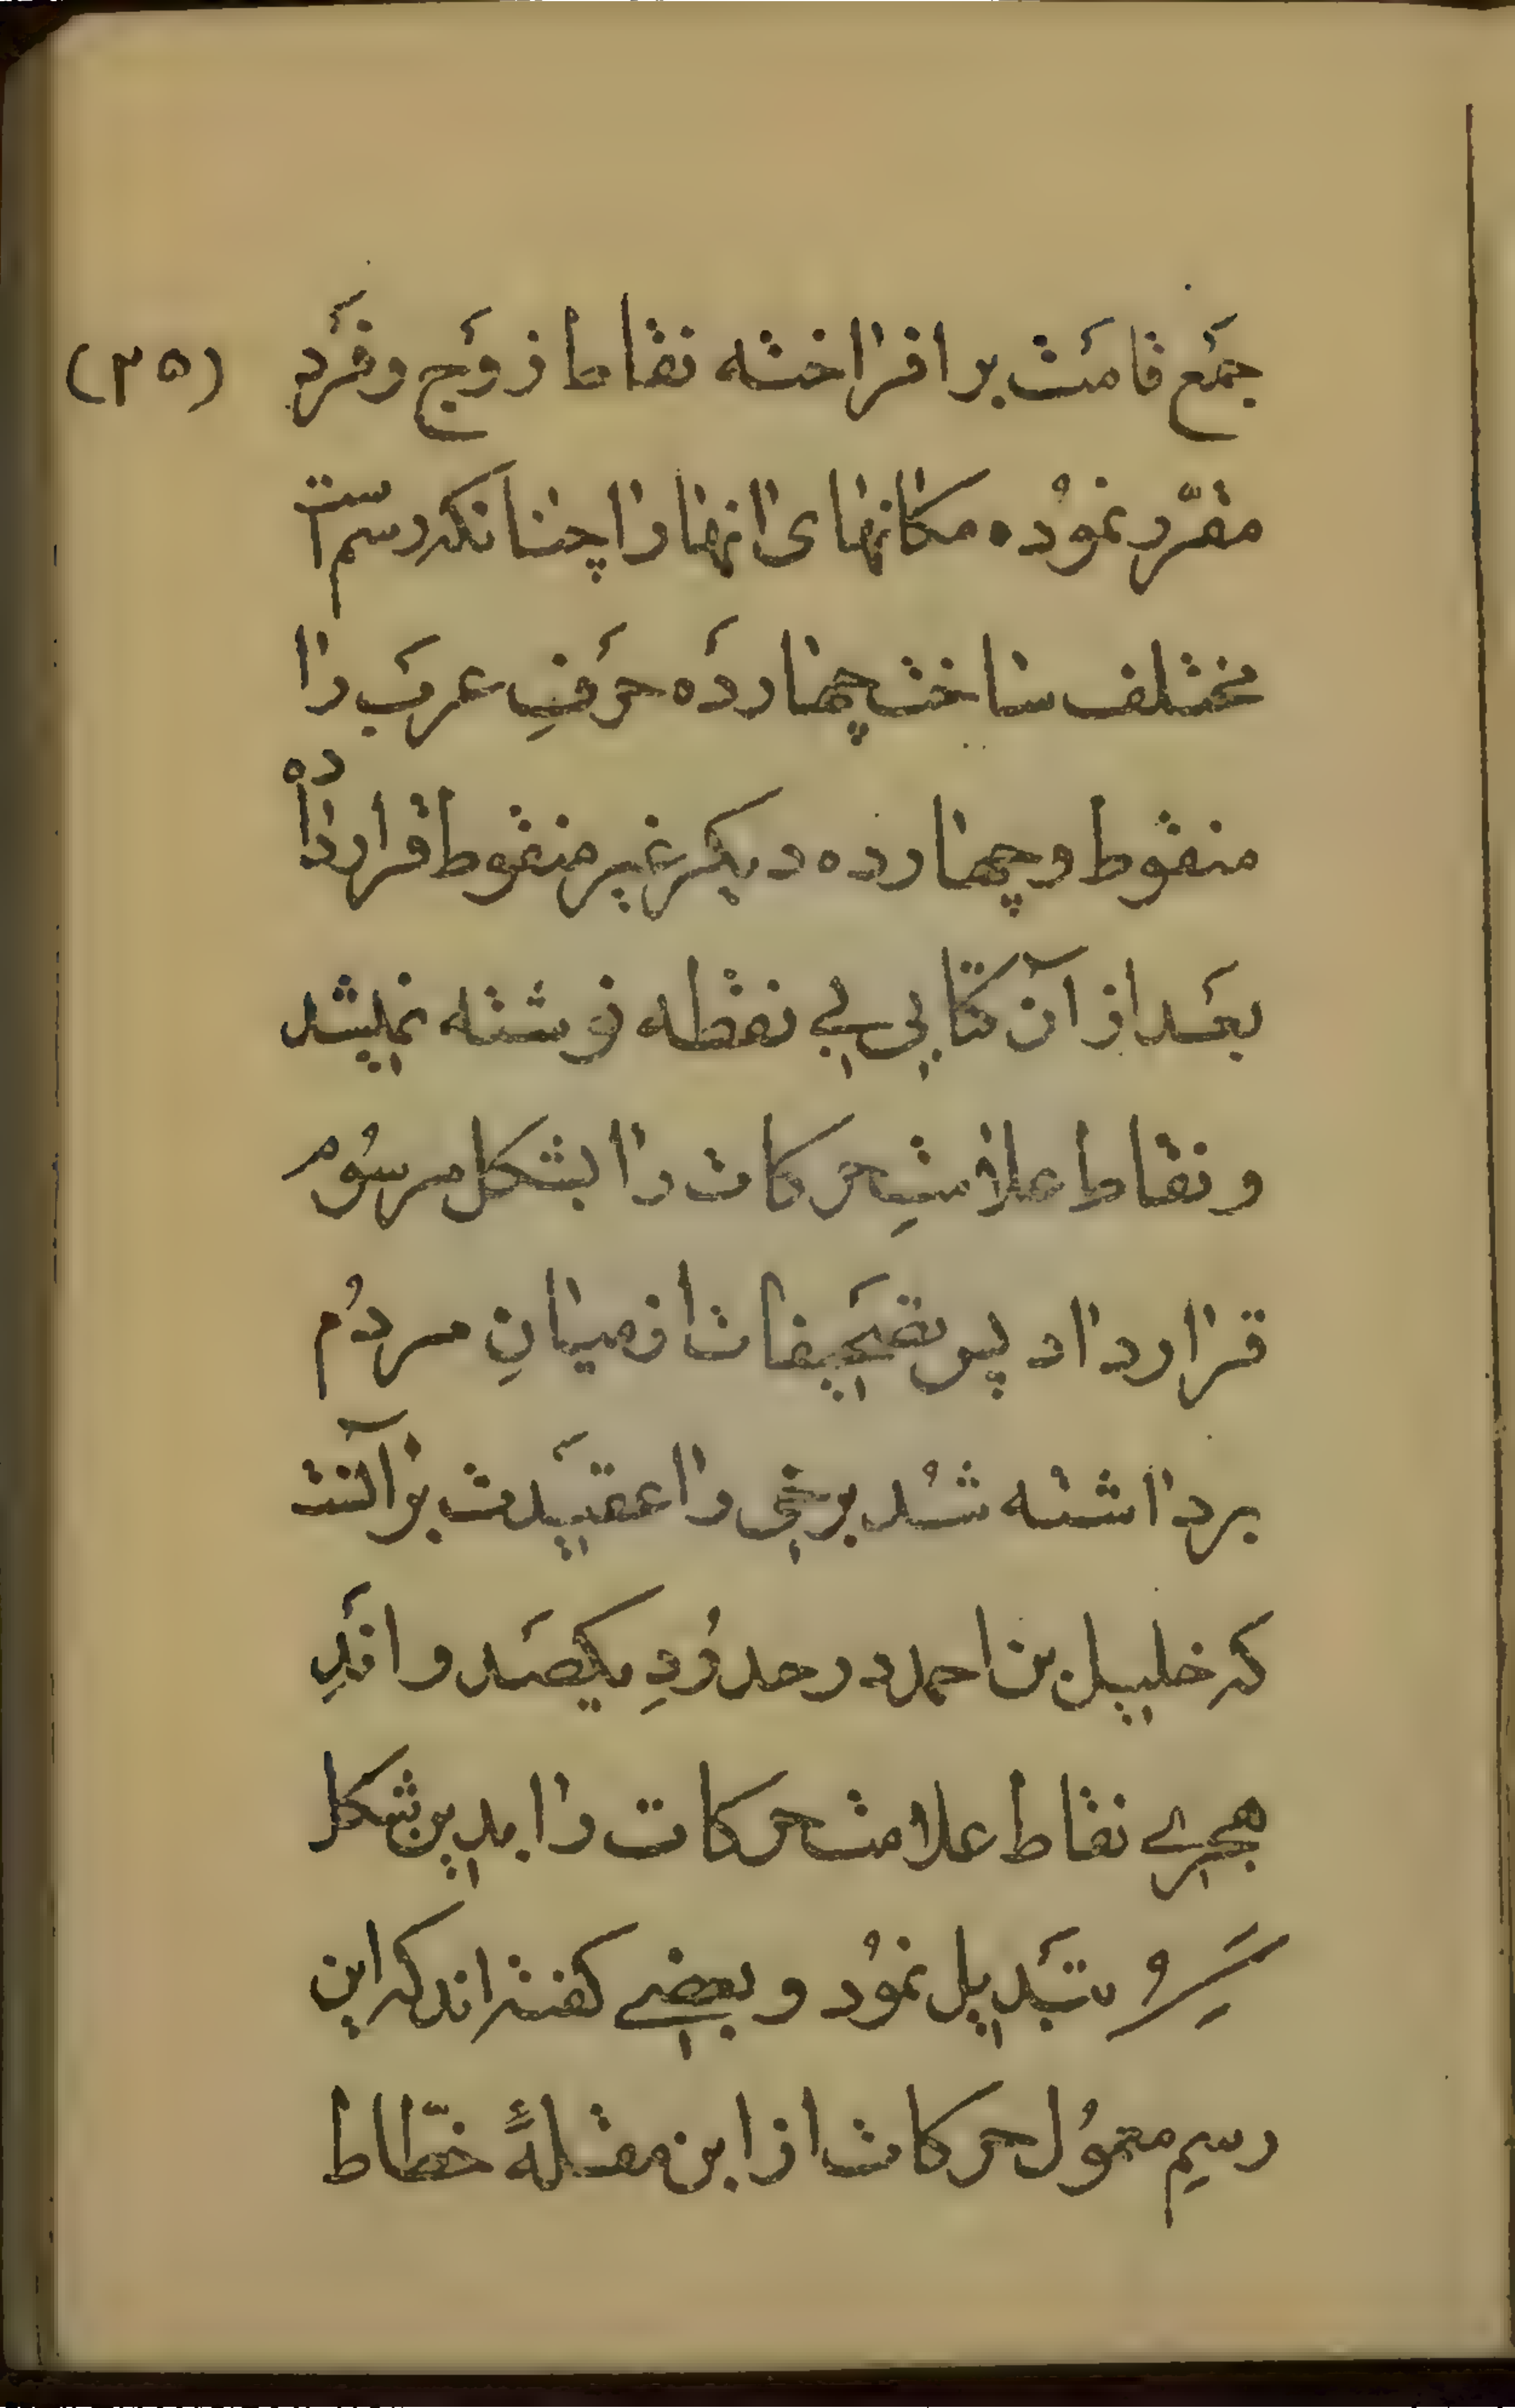 جمَع قامَت بر افراخته نقاط زوَج و فَرد (۳۵)
مقرّر نموُده مکانهای انها را چنانکه رسم است
مختلف ساخت چهاردَه حرَفِ عربَ را
منقوط و چهارده دیکر غیر منقوط قرارداده
بعَد از آن کتابی بی نقطه نوشته نمیشد
و نقاط علامتِ حرکات را بشکل مرسوُم
قرار داد پس تصَحیفات از میانِ مردُم
برداشته شُد برخی را عقیدَت بر آنست
که خلیل بن احمد در حدوُدِ یکصَد و اندَِ
هجری نقاط علامت حرکات را بدین شکل
ـَـِـُ تبَدیل نموُد و بعضی کفته اند که این
رسمِ معموُل حرکات از ابن مقلهٔ خطّاط